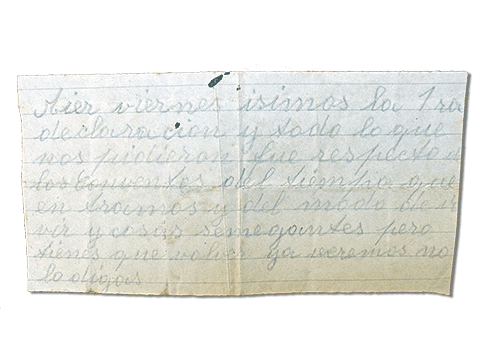 Aier viernes isimos la 1 ra
declaracion y todo lo que
nos pidieron fue respecto a
los del tiempo que
en tramos y del modo de vi
vir y cosas semegantes pero
tienes que volver ya veremos no
lo digas